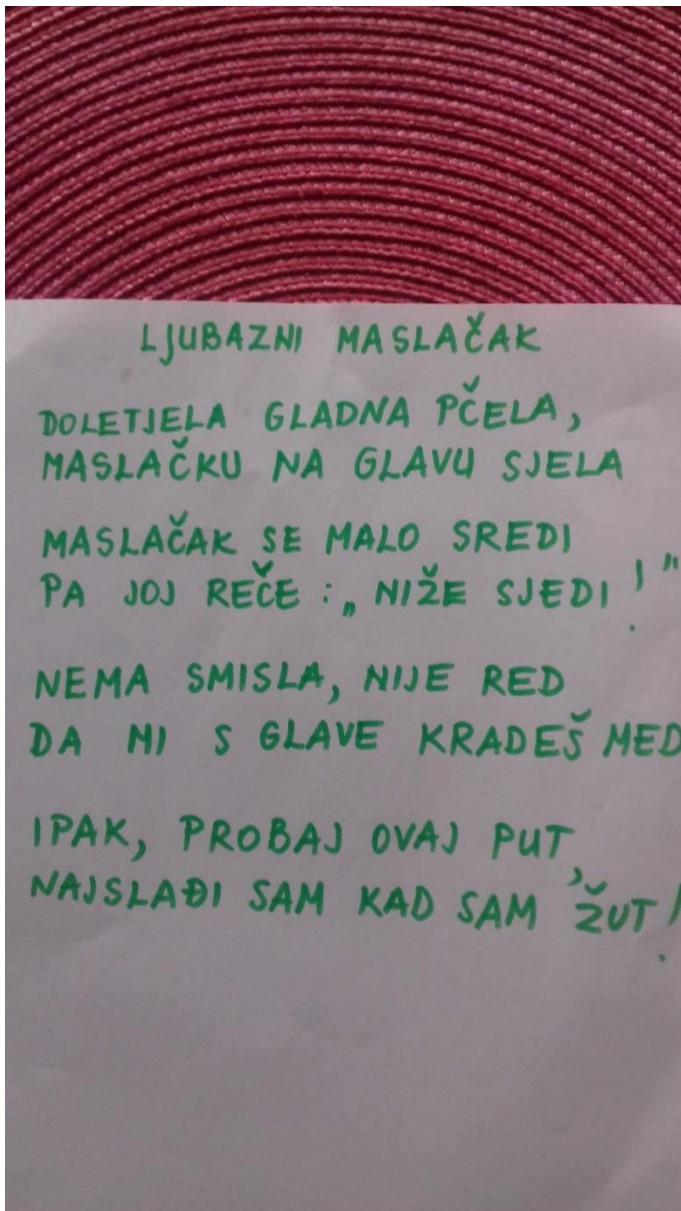 LJUBAZNI MASLAČAK
DOLETJELA GLADNA PČELA,
MASLAČKU NA GLAVU SJELA
MASLAČAK SE MALO SREDI
PA JOJ REČE: „NIŽE SJEDI!"
NEMA SMISLA, NIJE RED
DA MI S GLAVE KRADEŠ MED
IPAK, PROBAJ OVAJ PUT,
NAJSLAĐI SAM KAD SAM ŽUT!